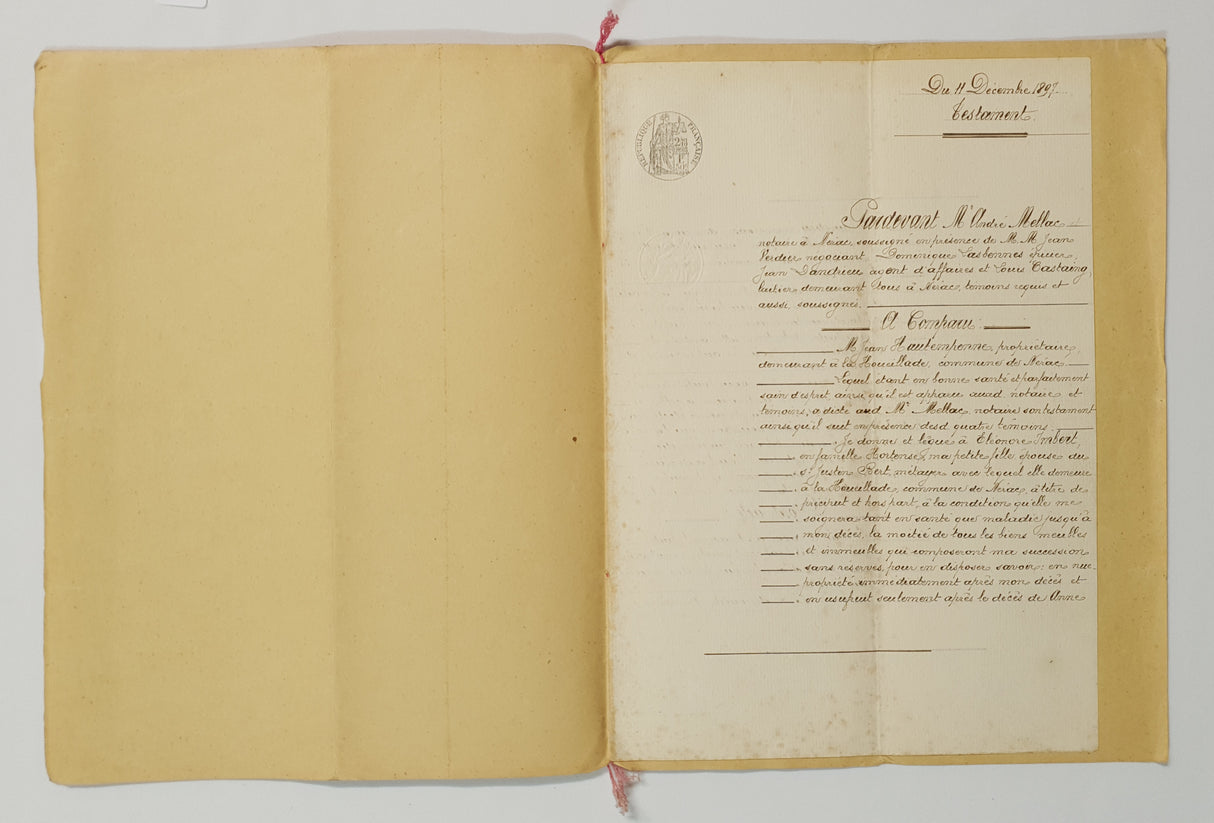 Du 11 Décembre 1897.
Testament.
RÉPUBLIQUE FRANÇAISE
Pardevant Me André Mellac
notaire à Nérac, soussigné en présence de M.M. Jean
Verdier négociant, Dominique Lasbennes épicier,
Jean Dandrieu agent d'affaires et Louis Castaing,
huitier demeurant tous à Nérac, témoins requis et
aussi soussignés.
A Comparu:
M. Jean Hautemponne, propriétaire,
demeurant à la Houeillade, commune de Nérac
Lequel étant en bonne santé et parfaitement
sain d'esprit, ainsi qu'il est apparu auxd. notaire et
témoins, a dicté aud. Me Mellac, notaire son testament
ainsi qu'il suit en présence desd. quatre témoins.
Je donne et lègue à Eléonore Imbert,
en famille Hortense, ma petite fille épouse du
sr Justin Bert, métayer avec lequel elle demeure
à la Houeillade, commune de Nérac, à titre de
préciput et hors part, à la condition qu'elle me
soignera tant en santé que maladie jusqu'à
mon décès, la moitié de tous les biens meubles
et immeubles qui composeront ma succession
sans réserves, pour en disposer savoir: en nue-
propriété immédiatement après mon décès et
en usufruit seulement après le décès de Anne